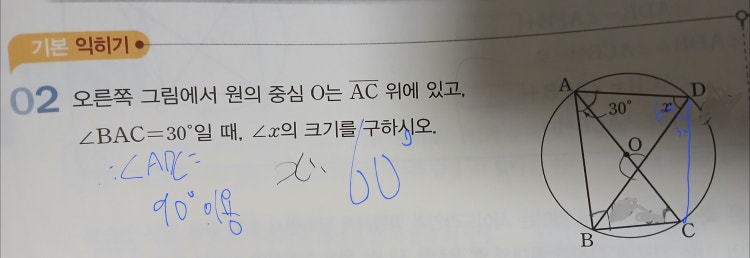 기본 익히기
02 오른쪽 그림에서 원의 중심 O는 AC 위에 있고,
∠BAC=30°일 때, ∠x의 크기를 구하시오.
∴∠ADC=
90° 이용
x: 60°
A
D
30°
x
O
B
C